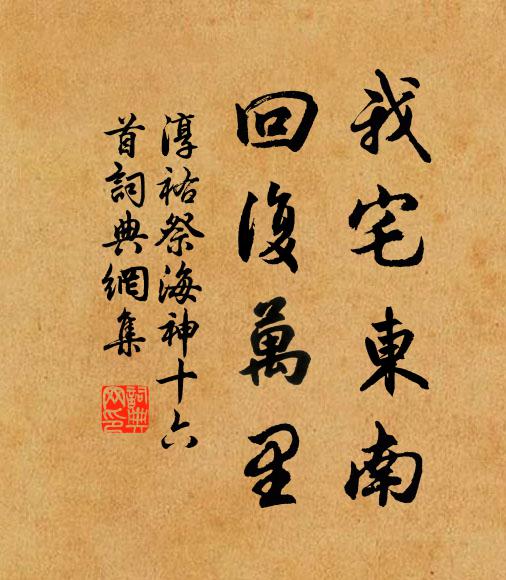 我宅東南
回復萬里
淳祐祭海神十六
首詞典網集
詞典網印